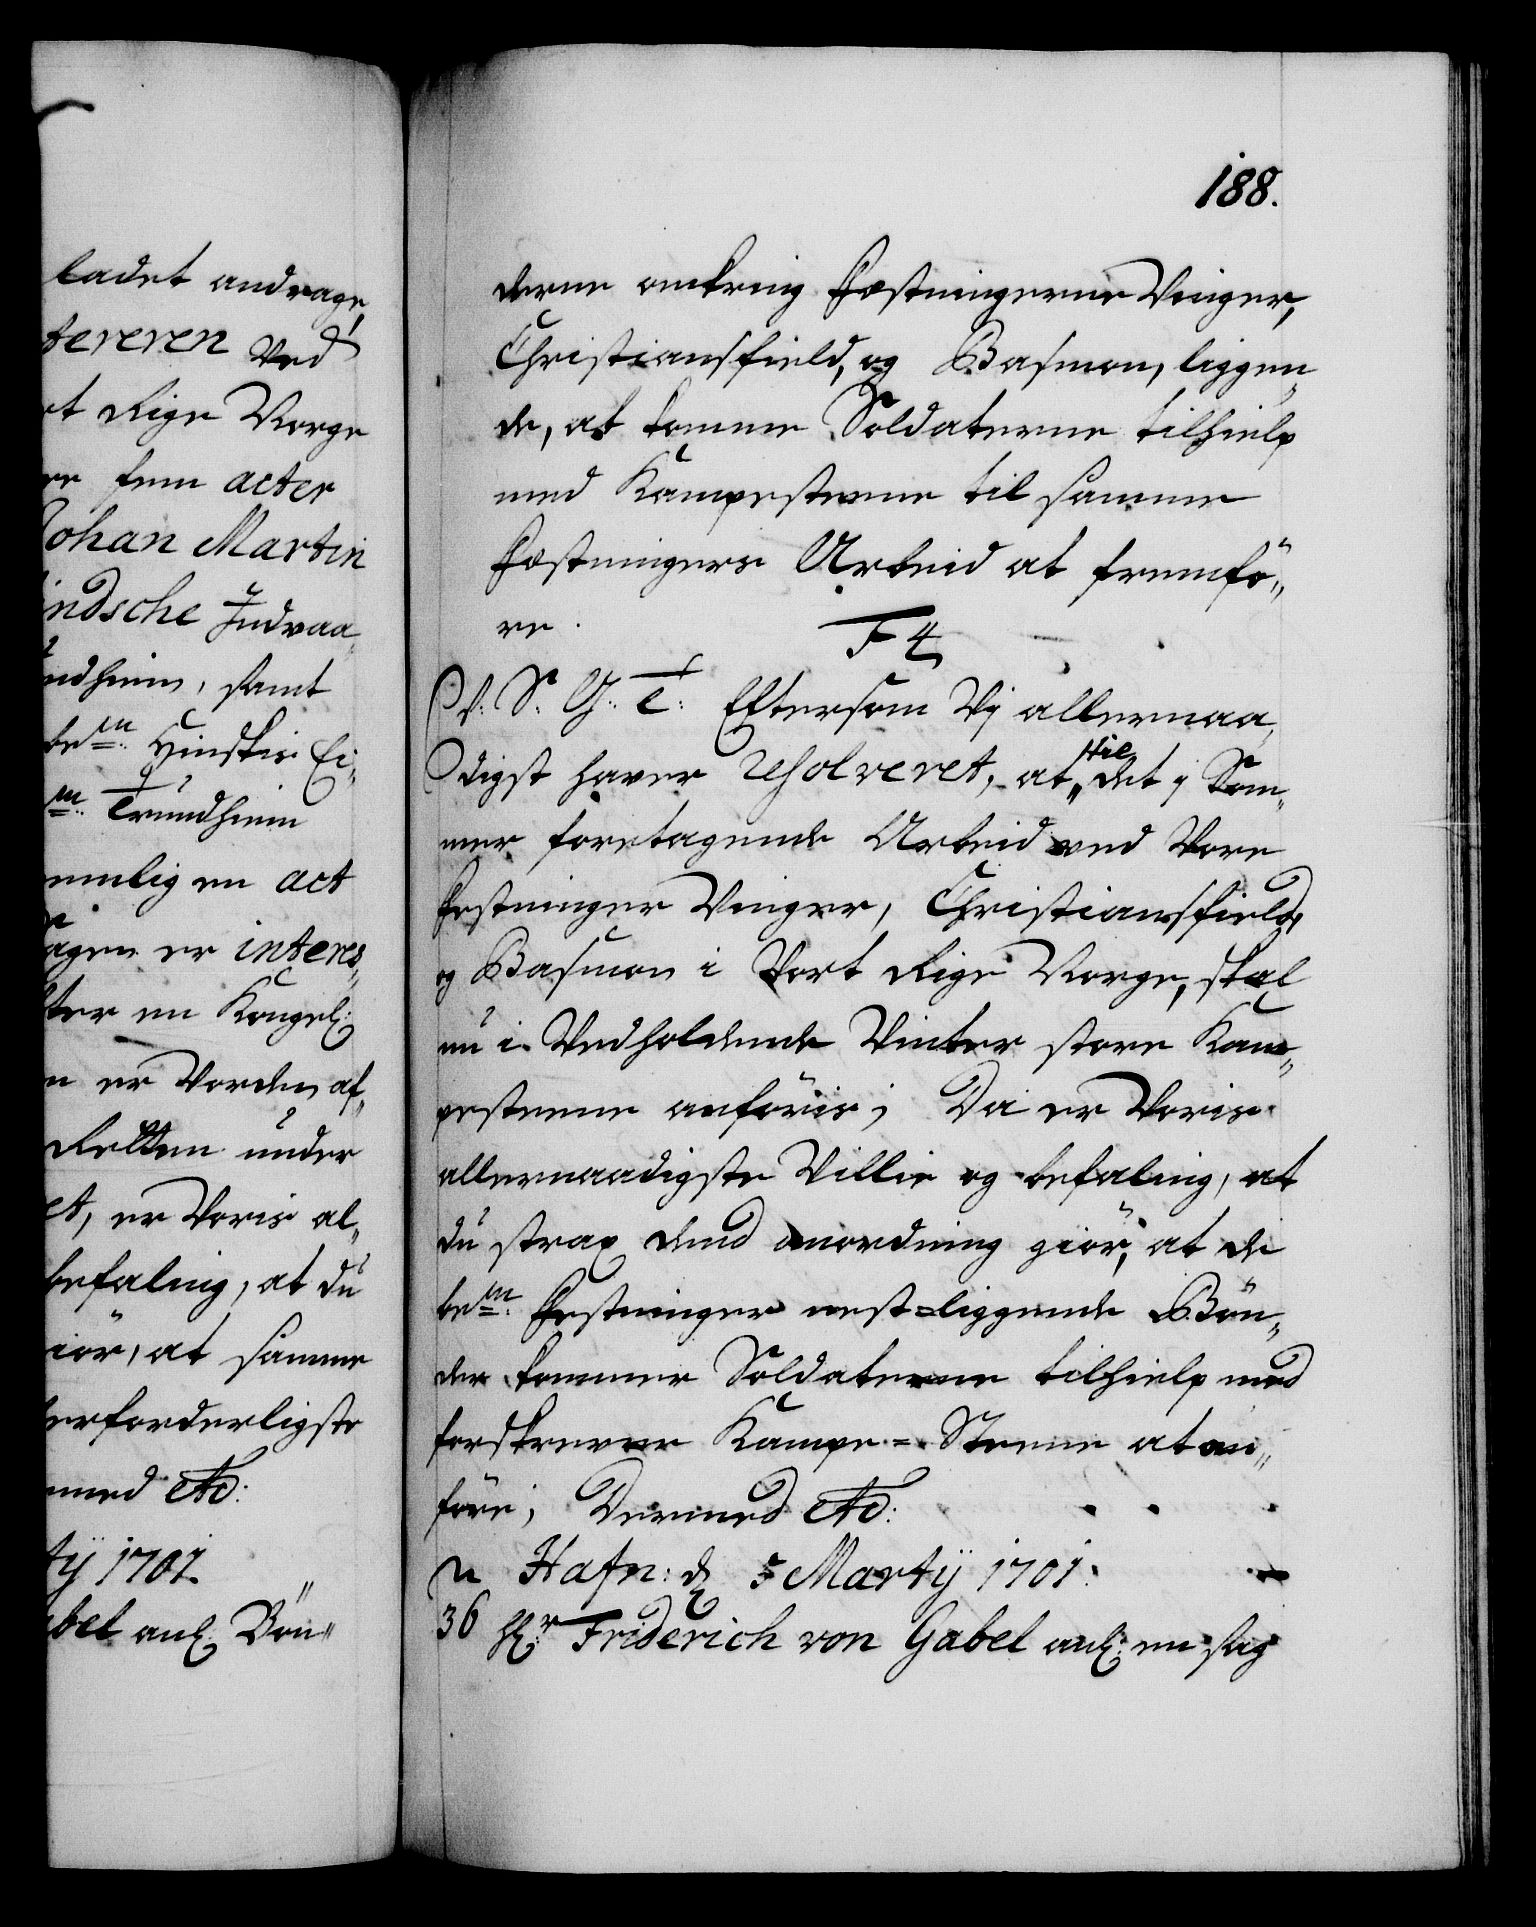 ladet andrage,
tereren ved
rt Rige Norge
re fem acter
Johan Martin
indsche Indvaa,,
ndhiem, samt
bem: Hindskes Ei,,
m: Trundhiem
nemlig en act
agen er interes,,
ter en Kongel:
n er vorden af,,
Retten under
et, er Voris al,,
befaling, at du
iör, at samme
erforderligste
med etc:
tÿ 1701.
abel anl: Bön,,
188.
derne omkring Fæstningerne Vinger,
Christiansfield, og Basmon, liggen,,
de, at komme Soldaterne tilhielp
med Kampesteene til samme
Fæstningers Arbeid at fremfö,,
re.
F 4
V: S. G: T: Eftersom Vj allernaa,,
digst haver resolveret, at til det j Som,,
mer foretagende Arbeid ved Vore
Festninger Vinger, Christiansfield,
og Basmon i Vort Rige Norge, skal
nu i Vedholdende Vinter store Kam,,
pesteene anföris; Da er Voris
allernaadigste Villie og befaling, at
du strax dend anordning giör, at de
bem: Festninger nest=liggende Bön,,
der kommer Soldaterne tilhielp med
forskrevne Kampe=Steene at an,,
före; Dermed etc:
Hafn: d 5 Martÿ 1701.
36 Hr: Friderich von Gabel anl: en sag